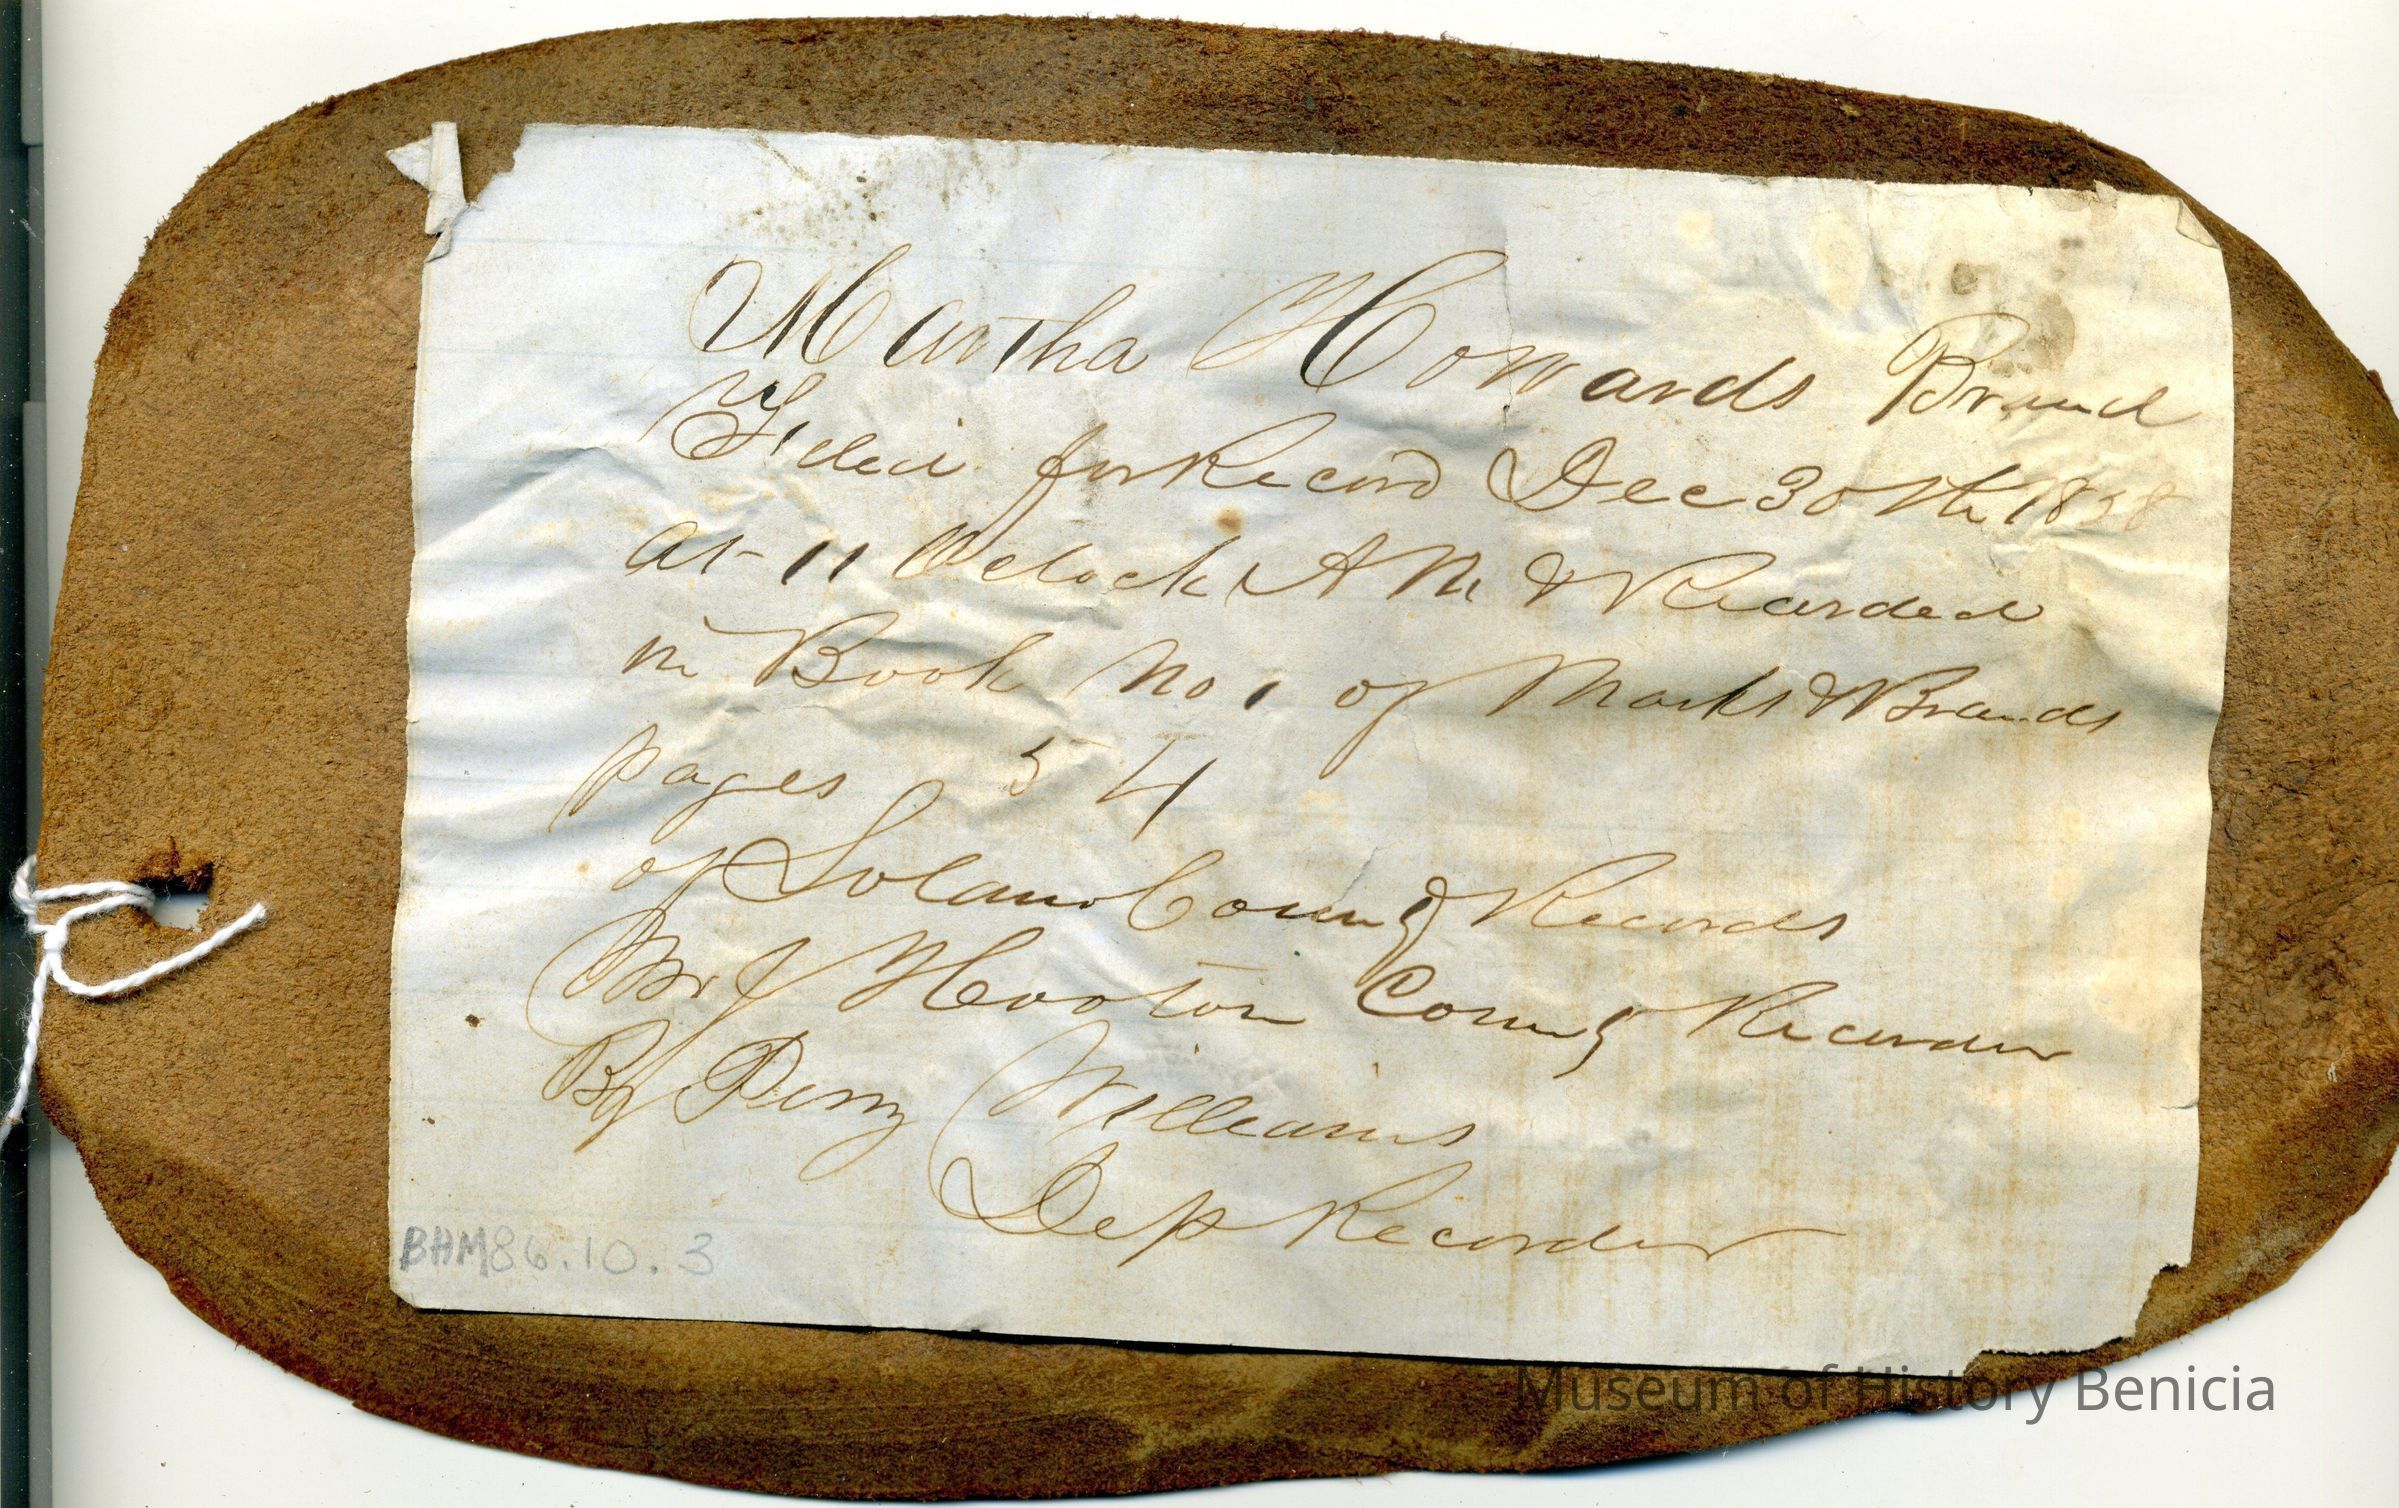 Martha Howards Brand
Filed for Record Dec 30th 1858
at 11 Oclock A M & Recorded
in Book No 1 of Marks & Brands
pages 54
of Solano County Records
Wm J Hooton County Recorder
By Perry Williams
Dep Recorder
BHM86.10.3
Museum of History Benicia